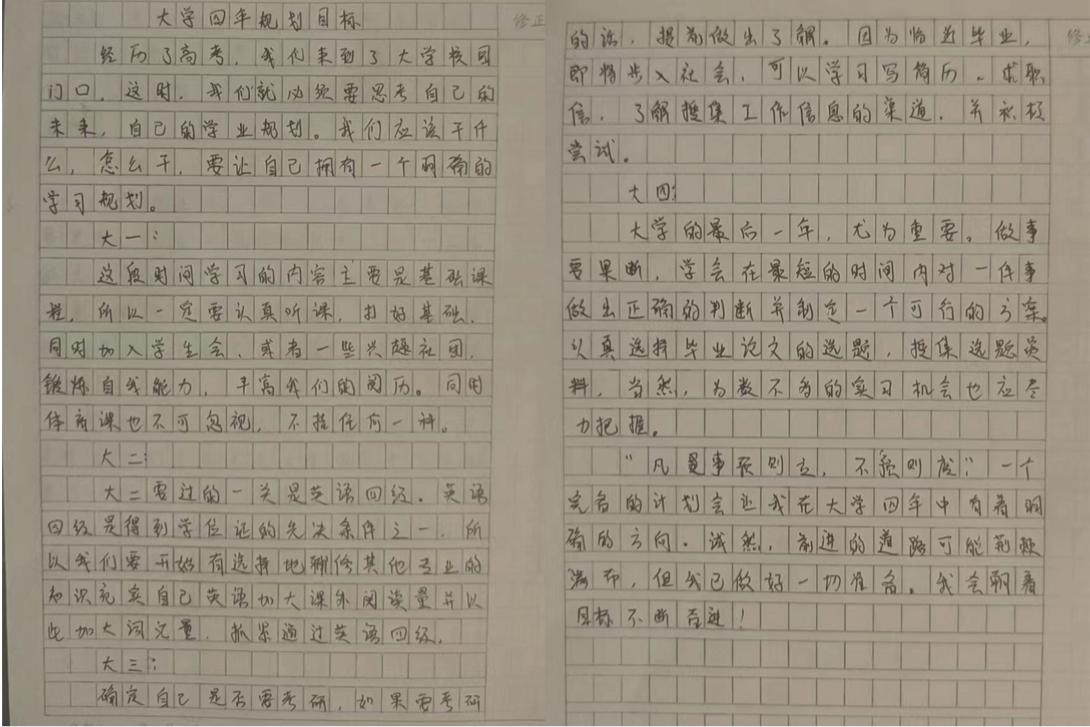 大学四年规划目标
修正
经历了高考，我们来到了大学校园
门口，这时，我们就必须要思考自己的
未来，自己的学业规划。我们应该干什
么，怎么干，要让自己拥有一个明确的
学习规划。
大一：
这段时间学习的内容主要是基础课
程，所以一定要认真听课，打好基础，
同时加入学生会、或者一些兴趣社团，
锻炼自我能力，丰富我们的阅历。同时
体育课也不可忽视，不挂任何一科。
大二：
大二要过的一关是英语四级。英语
四级是得到学位证的先决条件之一，所
以我们要开始有选择地辅修其他专业的
知识充实自己英语加大课外阅读量并以
此加大词汇量，抓紧通过英语四级。
大三：
确定自己是否要考研，如果要考研
的话，提前做出了解。因为临近毕业，
即将步入社会，可以学习写简历、求职
信，了解搜集工作信息的渠道，并积极
尝试。
大四：
大学的最后一年，尤为重要。做事
要果断，学会在最短的时间内对一件事
做出正确的判断并制定一个可行的方案。
认真选择毕业论文的选题，搜集选题资
料，当然，为数不多的实习机会也应尽
力把握。
“凡是事预则立，不预则废”，一个
完备的计划会让我在大学四年中有着明
确的方向。诚然，前进的道路可能荆棘
满布，但我已做好一切准备。我会朝着
目标不断奋进！